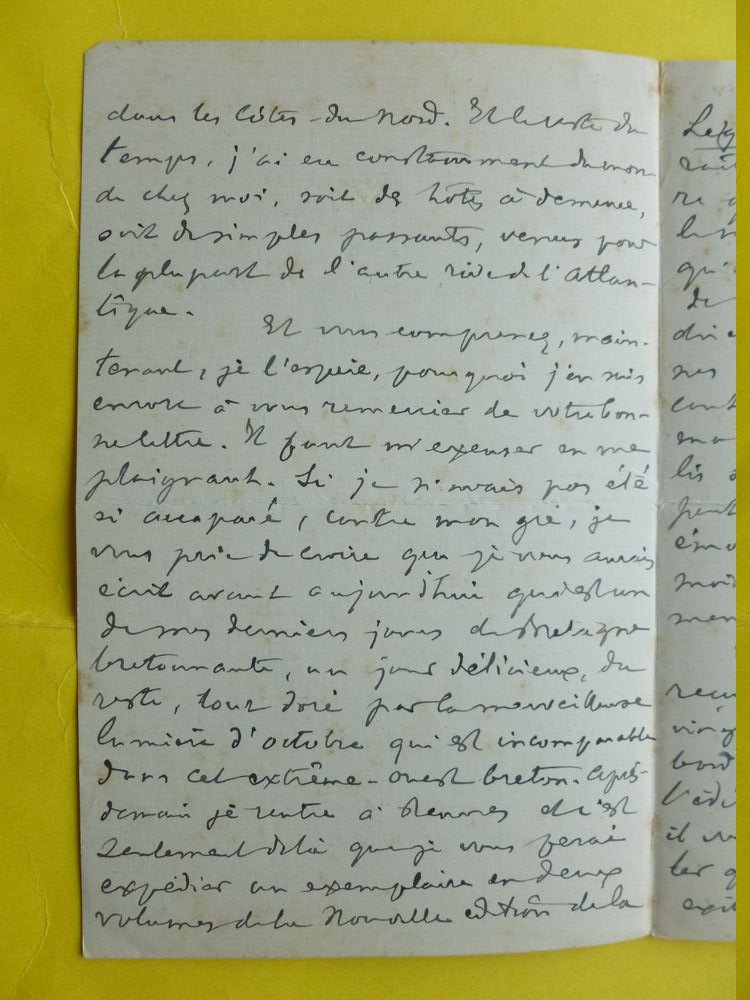 dans les Côtes-du-Nord. Et le reste du
temps, j'ai eu constamment du mon-
de chez moi, soit des hôtes à demeure,
soit de simples passants, venus pour
la plupart de l'autre rive de l'Atlan-
tique.
Et vous comprenez, main-
tenant, je l'espère, pourquoi j'en suis
encore à vous remercier de votre bon-
ne lettre. Il faut m'excuser en me
plaignant. Si je n'avais pas été
si accaparé, contre mon gré, je
vous prie de croire que je vous aurais
écrit avant aujourd'hui qui est un
de mes derniers jours de Bretagne
bretonnante, un jour délicieux, du
reste, tout doré par la merveilleuse
lumière d'octobre qui est incomparable
dans cet extrême-ouest breton. Après-
demain je rentre à Rennes et c'est
seulement de là que je vous ferai
expédier un exemplaire en deux
volumes de la Nouvelle édition de la